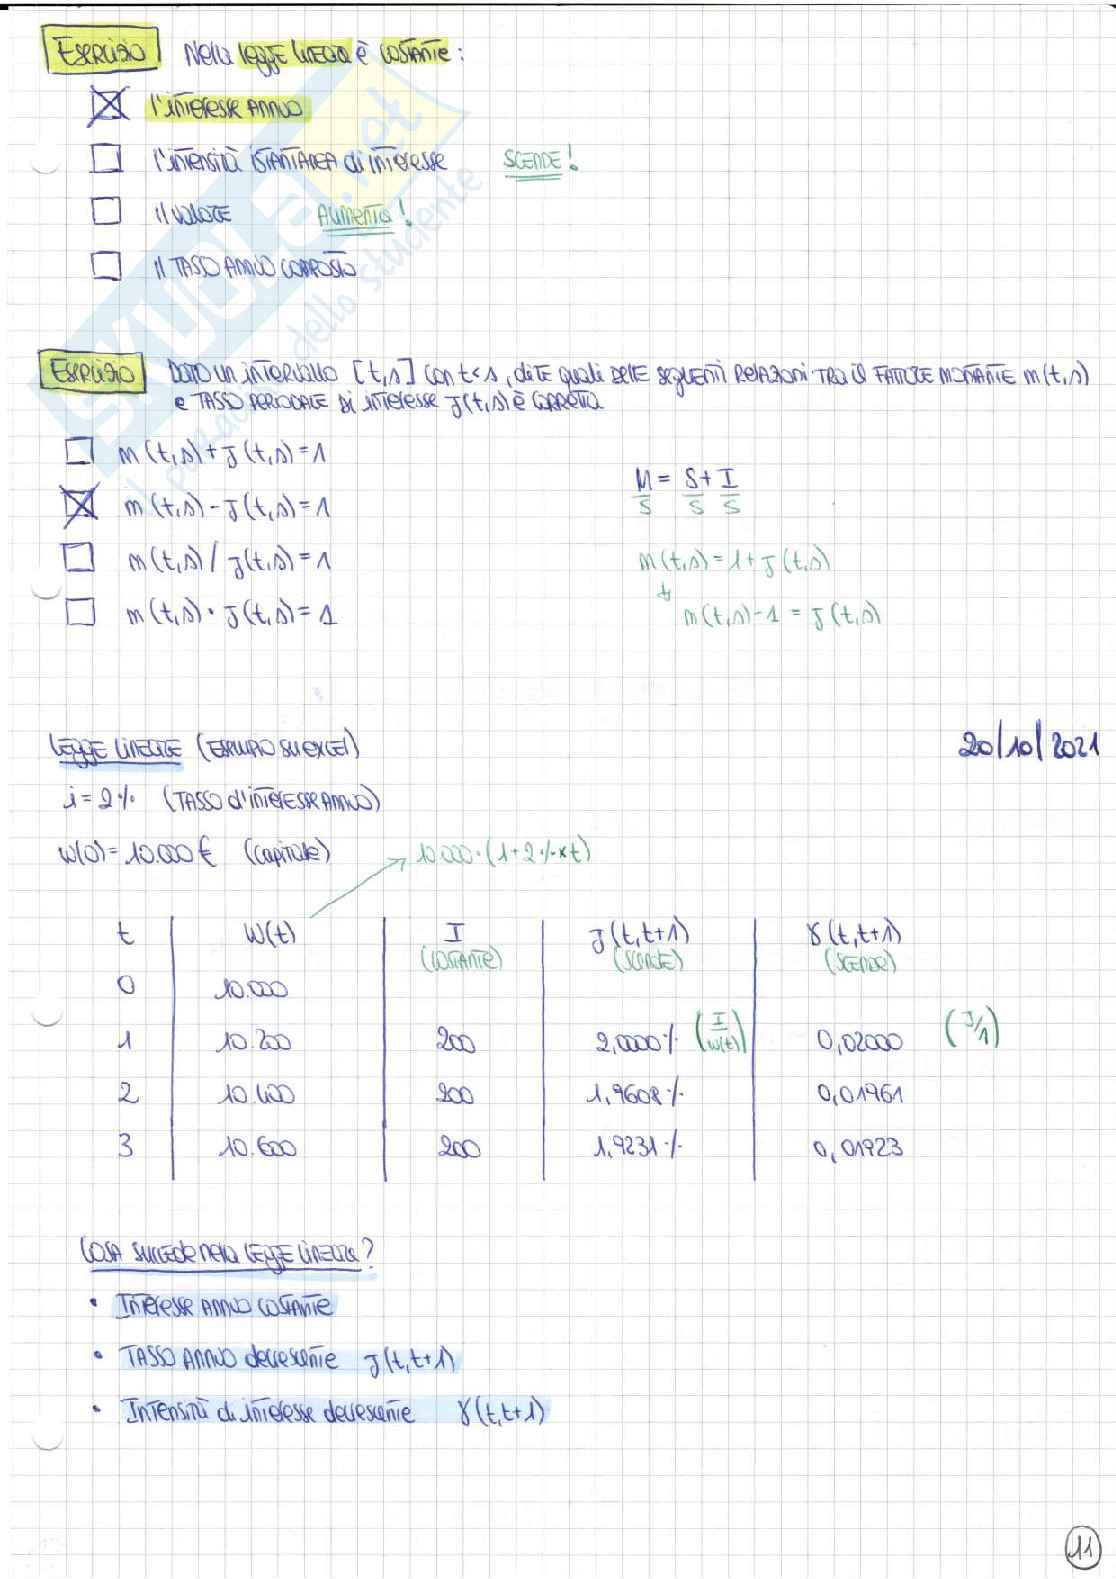 Esercizio Nella legge lineare è costante:
l'interesse annuo
l'intensità istantanea di interesse scende!
il valore Aumenta!
il tasso annuo composto
Esercizio Dato un intervallo [t,s] con t<s, dite quali delle seguenti relazioni tra il fattore montante m(t,s)
e tasso periodale di interesse j(t,s) è corretta
m(t,s)+j(t,s)=1
m(t,s)-j(t,s)=1
m(t,s)/j(t,s)=1
m(t,s)·j(t,s)=1
M = S+I
S S S
m(t,s)=1+j(t,s)
m(t,s)-1 = j(t,s)
legge lineare (esempio su excel) 20/10/2021
i=2% (tasso d'interesse annuo)
W(0)=10.000€ (capitale) 10.000·(1+2%×t)
t W(t) I j(t,t+1) γ(t,t+1)
(costante) (scende) (scende)
0 10.000
1 10.200 200 2,0000% (I/W(t)) 0,02000 (J/1)
2 10.400 200 1,9608% 0,01961
3 10.600 200 1,9231% 0,01923
Cosa succede nella legge lineare?
• Interesse annuo costante
• Tasso annuo decrescente j(t,t+1)
• Intensità di interesse decrescente γ(t,t+1)
11
skuola.net
il paradiso dello studente